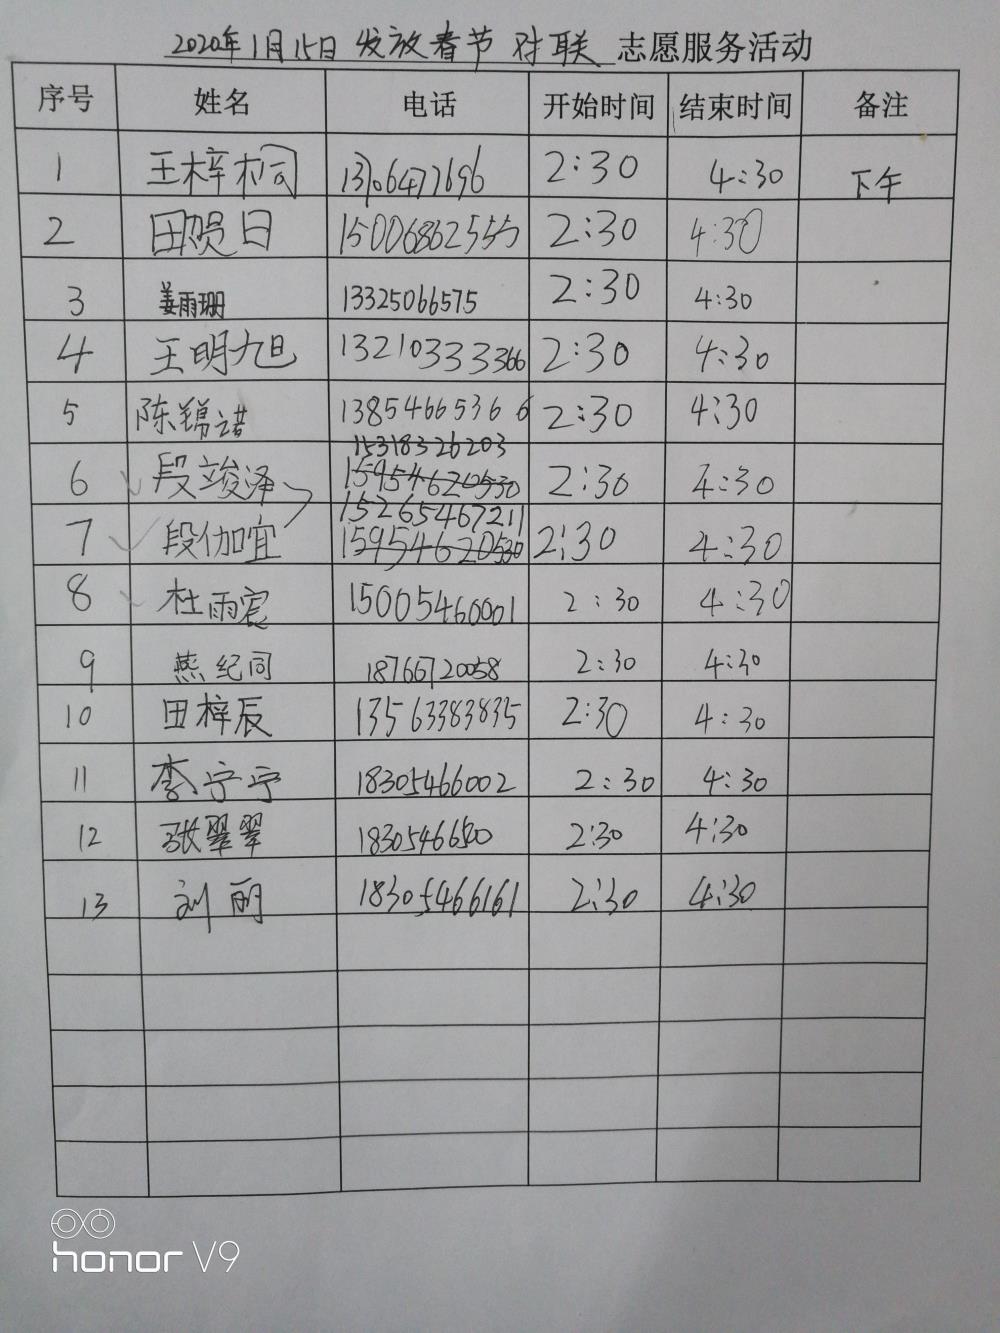 2020年1月15日 发放春节对联 志愿服务活动
序号 姓名 电话 开始时间 结束时间 备注
1 王梓桐 13706477696 2:30 4:30 下午
2 田贺日 15006862555 2:30 4:30
3 姜雨珊 13325066575 2:30 4:30
4 王明旭 13210333366 2:30 4:30
5 陈锦诺 13854665366 2:30 4:30
15318326203
6 段竣泽 15954620530 2:30 4:30
15265467211
7 段伽宜 15954620530 2:30 4:30
8 杜雨宸 15005460001 2:30 4:30
9 燕纪同 18766720058 2:30 4:30
10 田梓辰 13563383835 2:30 4:30
11 李宁宁 18305466002 2:30 4:30
12 张翠翠 2:30 4:30
13 刘丽 18305466161 2:30 4:30
honor V9